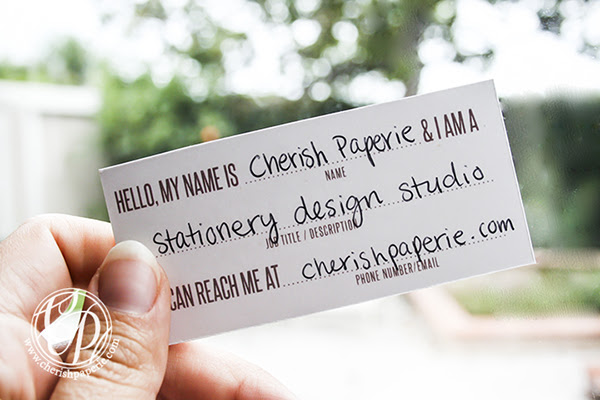 HELLO, MY NAME IS Cherish Paperie & I AM A
NAME
stationery design studio
JOB TITLE / DESCRIPTION
CAN REACH ME AT cherishpaperie.com
PHONE NUMBER/EMAIL
CP
www.cherishpaperie.com